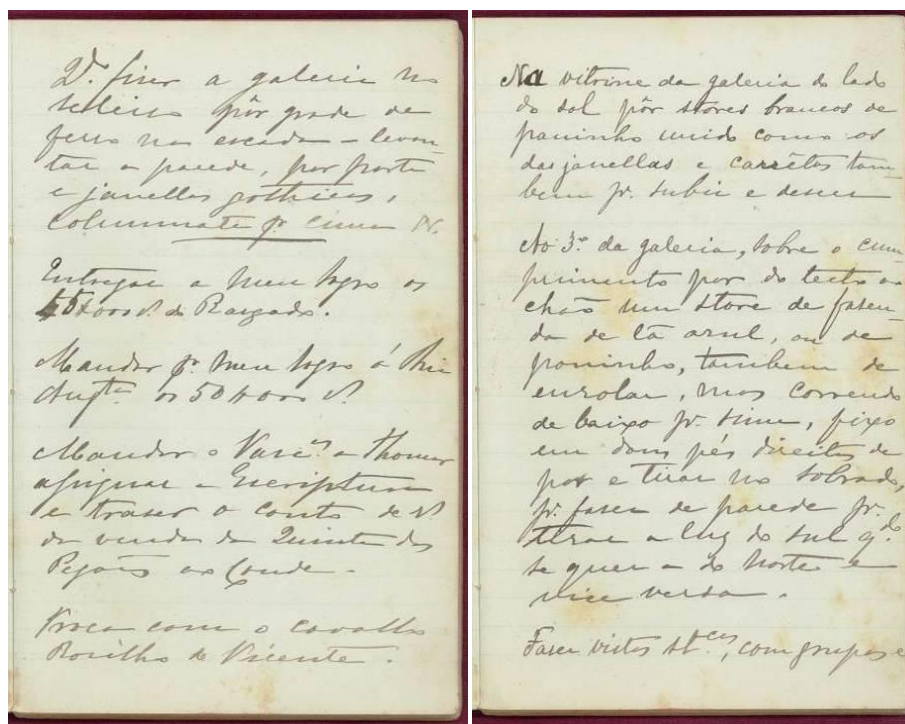 fizer a galeria no
pôr grade de
ferro na escada - levan-
tar a parede, por porta
e janellas gothicas,
columnata pr. cima
Entregar a meu sogro os
do Rasgado.
Mandar pr. meu sogro á Thia
os 50$000 rs.
Mandar o a Thomar
assignar a Escriptura
e traser o conto de rs.
da venda da Quinta dos
Pegões ao Conde -
Troca com o cavallo
Rosilho do Vicente.
Na vitrine da galeria do lado
do sol pôr stores brancos de
paninho unido como os
das janellas e carrêtos tam-
bem pr. subir e descer
No 3º. da galeria, sobre o cum-
primento por do tecto ao
chão um store de fasen-
da de lã asul, ou de
paninho, tambem de
enrolar, mas correndo
de baixo pr. sima, fixo
em dous pés direitos de
por e tirar no sobrado,
pr. faser de parede pr.
tirar a luz do sul qdo.
se quer a do norte e
vice versa.
Faser vistas stcas., com grupos e